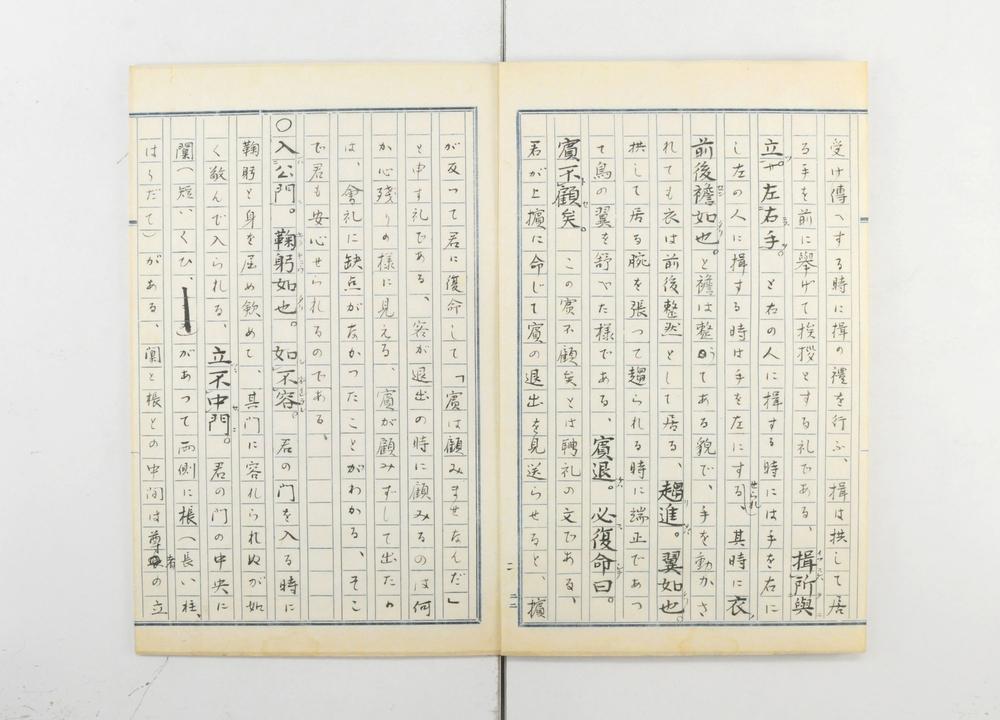 受け傳へする時に揖の禮を行ふ、揖は拱して居
る手を前に擧げて挨拶とする礼である、揖所與
立。左右手。と右の人に揖する時には手を右に
し左の人に揖する時は手を左にする、其時に衣
前後襜如也。と襜は整うてある貌で、手を動かさ
れても衣は前後整然として居る、趨進。翼如也。
拱して居る腕を張つて趨られる時に端正であつ
て鳥の翼を舒べた様である、賓退。必復命曰。
賓不顧矣。この賓不顧矣とは聘礼の文である、
君が上擯に命じて賓の退出を見送らせると、擯
二二
が反つて君に復命して「賓は顧みませなんだ」
と申す礼である、客が退出の時に顧みるのは何
か心残りの様に見える、賓が顧みずして出たの
は、會礼に缺点がなかつたことがわかる、そこ
で君も安心せられるのである、
〇入公門。鞠躬如也。如不容。君の門を入る時に
鞠躬と身を屈め歛めて、其門に容れられぬが如
く敬んで入られる、立不中門。君の門の中央に
闑(短いくひ、)があつて両側に棖(長い柱、
はうだて)がある、闑と棖との中間は尊者の立